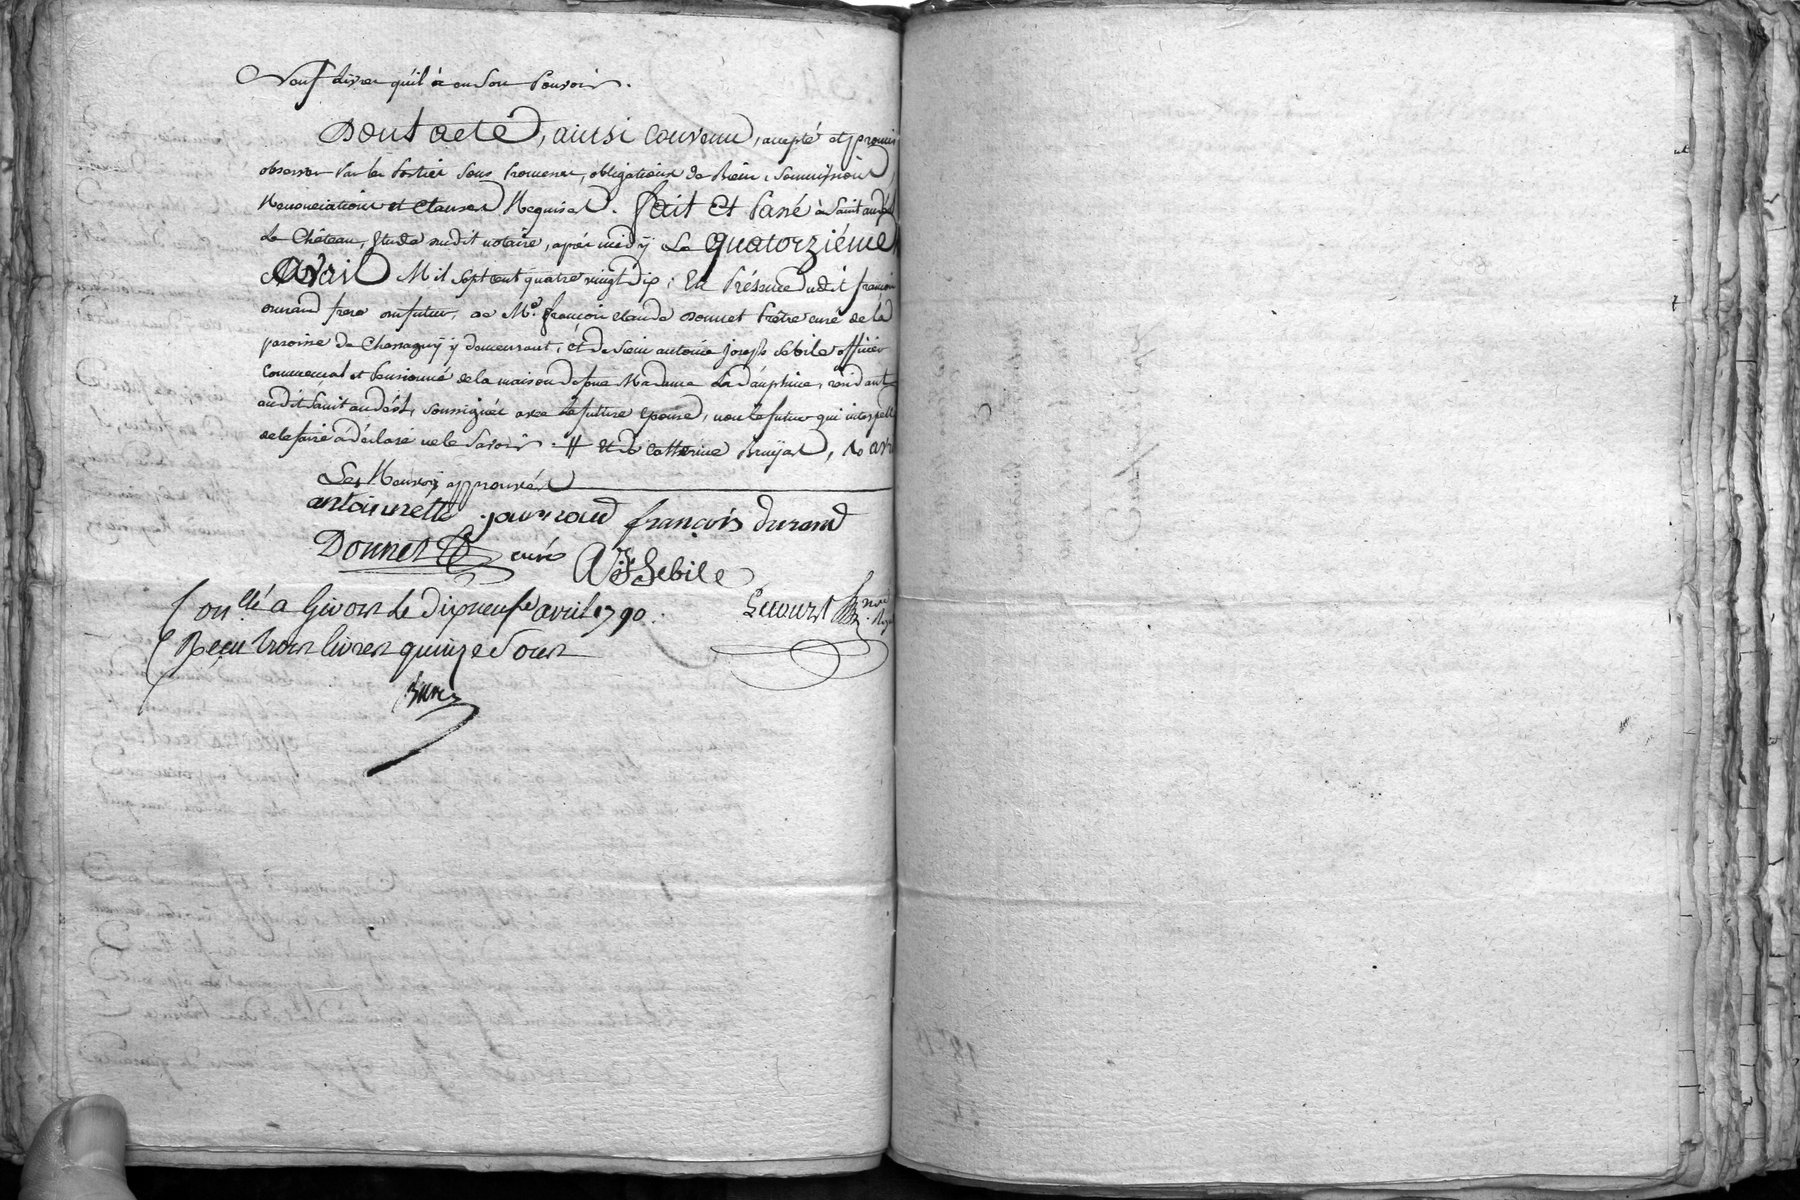 Neuf livres qu'il a en son Pouvoir.
Dont acte, ainsi convenu, accepté et promis
observer Par les Parties sous Promesses, obligations de Biens, soumissions
Renonciations et clauses Requises. fait et Passé à Saint andéol
Le Château, Etude dudit notaire, après midÿ Le quatorzième
avril Mil sept cent quatre vingt dix; En Présence dudit françois
Durand frere du futur, de Mre. françois claude Donnet Prêtre curé de la
paroisse de Chassagnÿ ÿ demeurant, et de sieur antoine Joseph Sebile officier
Commensal et Pensionné de la maison de feue Madame La dauphine, residant
audit Saint andéol, soussignés avec la future Epouse, non le futur qui interpellé
de le faire à déclaré ne le Savoir.
Les Renvois approuvés
antoinette françois durand
Donnet curé AJ Sebile
Con.llé a Givors le dixneufe avril 1790.
Recu trois livres quinze sous